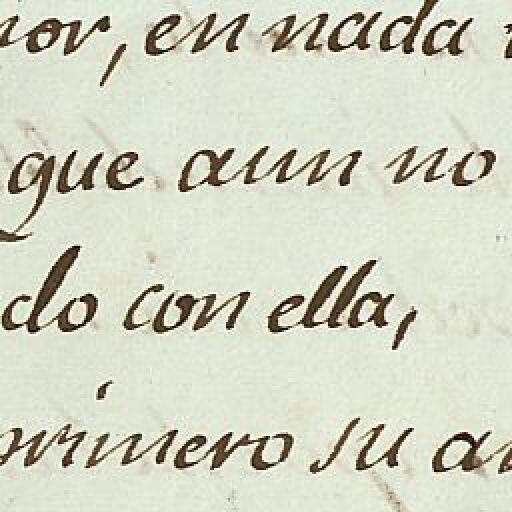 en nada
que aun no
do con ella,
primero su